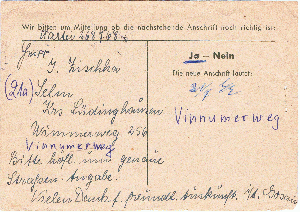 Wir bitten um Mitteilung ob die nachstehende Anschrift noch richtig ist:
Herrn
J. Zischka
(21a) Selm
Krs Lüdinghausen
Wimmerweg 256
Vinnumerweg
Bitte höfl. um genaue
Straßen-Angabe.
Vielen Dank f. freundl. Auskunft.
Ja — Nein
Die neue Anschrift lautet:
Vinnumerweg